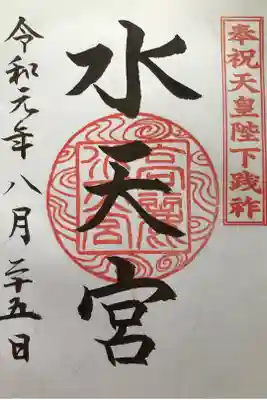 奉祝天皇陛下践祚
水天宮
高麗
水天宮
令和元年八月二十五日